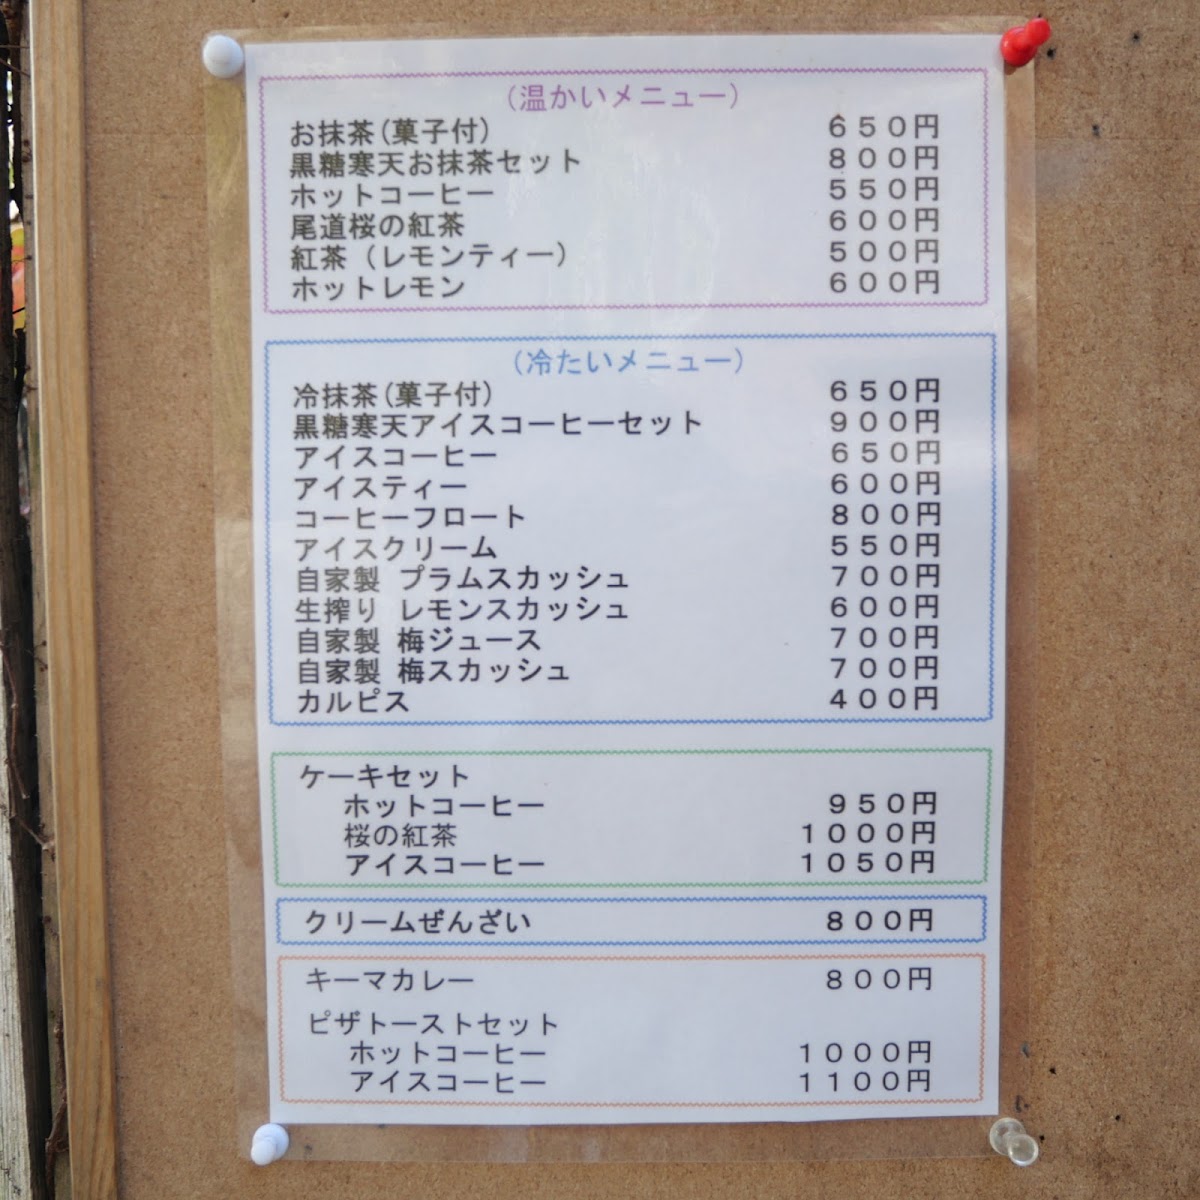 (温かいメニュー)
お抹茶(菓子付) 650円
黒糖寒天お抹茶セット 800円
ホットコーヒー 550円
尾道桜の紅茶 600円
紅茶(レモンティー) 500円
ホットレモン 600円
(冷たいメニュー)
冷抹茶(菓子付) 650円
黒糖寒天アイスコーヒーセット 900円
アイスコーヒー 650円
アイスティー 600円
コーヒーフロート 800円
アイスクリーム 550円
自家製 プラムスカッシュ 700円
生搾り レモンスカッシュ 600円
自家製 梅ジュース 700円
自家製 梅スカッシュ 700円
カルピス 400円
ケーキセット
ホットコーヒー 950円
桜の紅茶 1000円
アイスコーヒー 1050円
クリームぜんざい 800円
キーマカレー 800円
ピザトーストセット
ホットコーヒー 1000円
アイスコーヒー 1100円